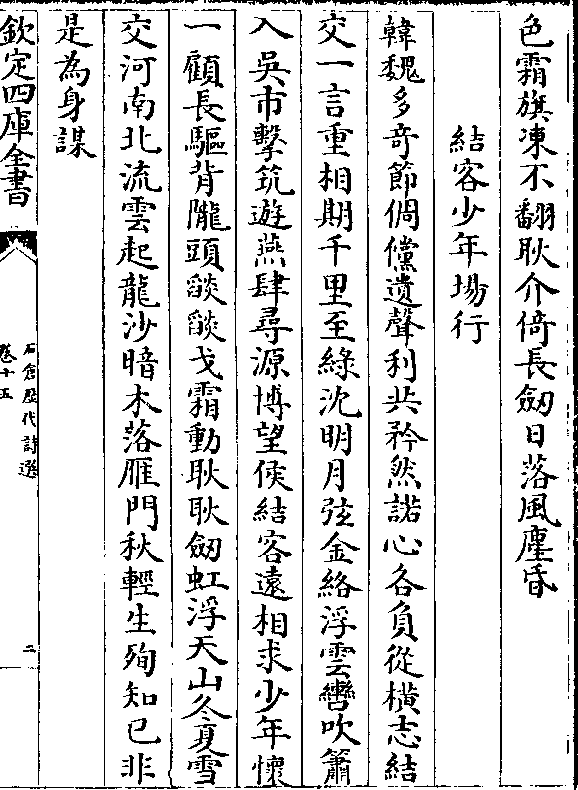 色霜旗凍不翻耿介倚長劒日落風塵昏
結客少年場行
韓魏多奇節倜儻遺聲利共矜然諾心各負從橫志結
交一言重相期千里至綠沈明月弦金絡浮雲轡吹簫
入吳市擊筑遊燕肆尋源博望侯結客遠相求少年懷
一顧長驅背隴頭燄燄戈霜動耿耿劒虹浮天山冬夏雪
交河南北流雲起龍沙暗木落雁門秋輕生殉知已非
是為身謀
欽定四庫全書
石倉歷代詩選
卷十五
二